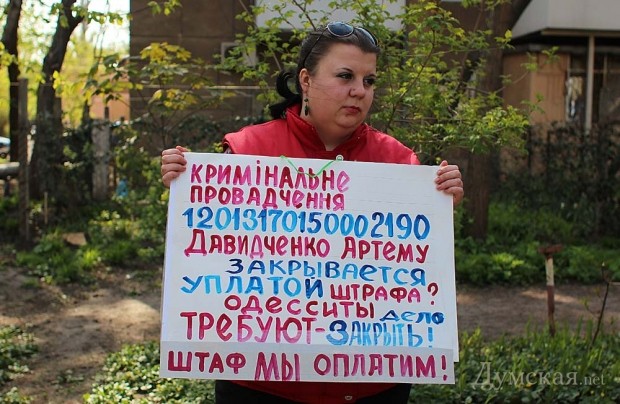 КРИМІНАЛЬНЕ
ПРОВАДЧЕННЯ
12013170150002190
ДАВИДЧЕНКО АРТЕМУ
ЗАКРЫВАЕТСЯ
УПЛАТОЙ ШТРАФА?
ОДЕССИТЫ ДЕЛО
ТРЕБУЮТ-ЗАКРЫТЬ!
ШТАФ МЫ ОПЛАТИМ!
Думская.net